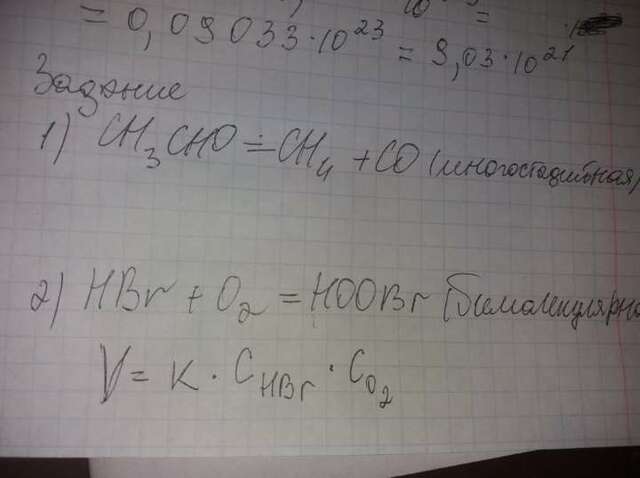 = 0,09033·10²³ = 9,03·10²¹
Задание
1) CH₃CHO = CH₄ + CO (многостадийная)
2) HBr + O₂ = HOOBr (бимолекулярно
V = K · C_HBr · C_O₂